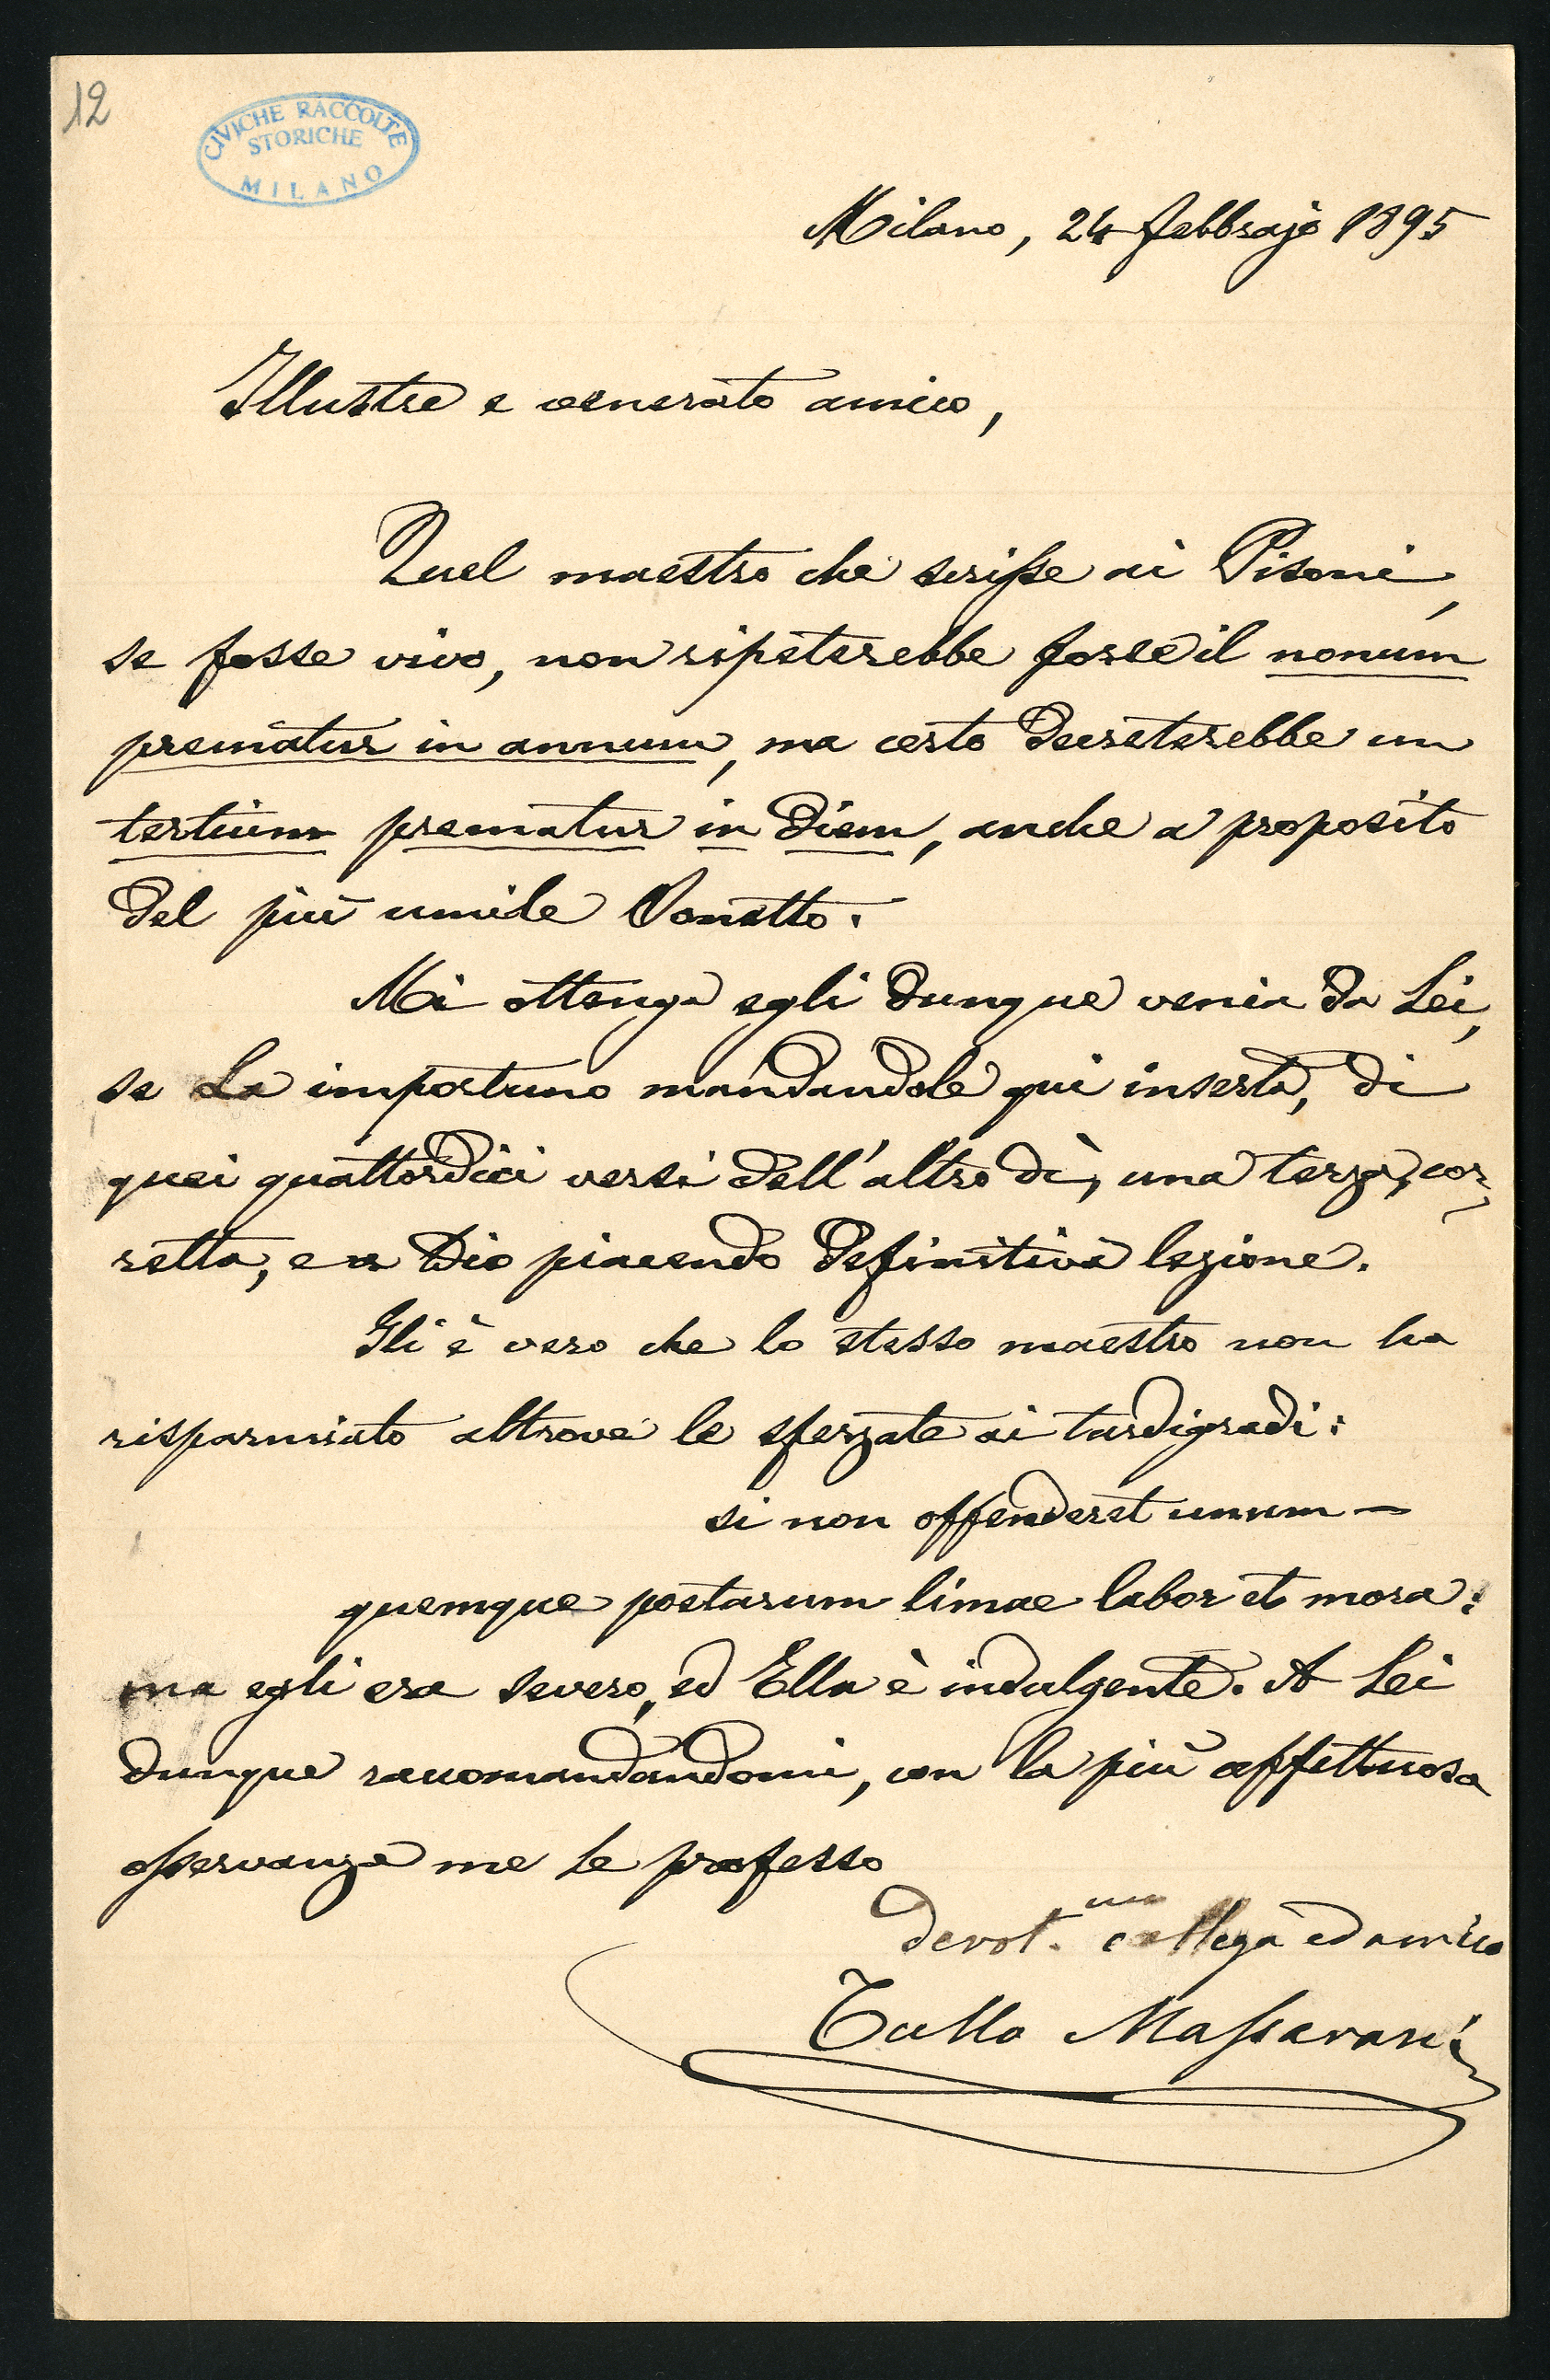 12
CIVICHE RACCOLTE
STORICHE
MILANO
Milano, 24 febbrajo 1895
Illustre e venerato amico,
Quel maestro che scrisse ai Pisoni,
se fosse vivo, non ripeterebbe forse il nonum
prematur in annum, ma certo decreterebbe un
tertium prematur in diem, anche a proposito
del più umile Sonetto.
Mi ottenga egli dunque venia da Lei,
se La importuno mandandole qui inserta, di
quei quattordici versi dell'altro dì, una terza, cor-
retta, e a Dio piacendo definitiva lezione.
Gli è vero che lo stesso maestro non ha
risparmiato altrove le sferzate ai tardigradi:
si non offenderet unum-
quemque poetarum limae labor et mora:
ma egli era severo, ed Ella è indulgente. A Lei
dunque raccomandandomi, con la più affettuosa
osservanza me le professo
devot.mo collega ed amico
Tullo Massarani